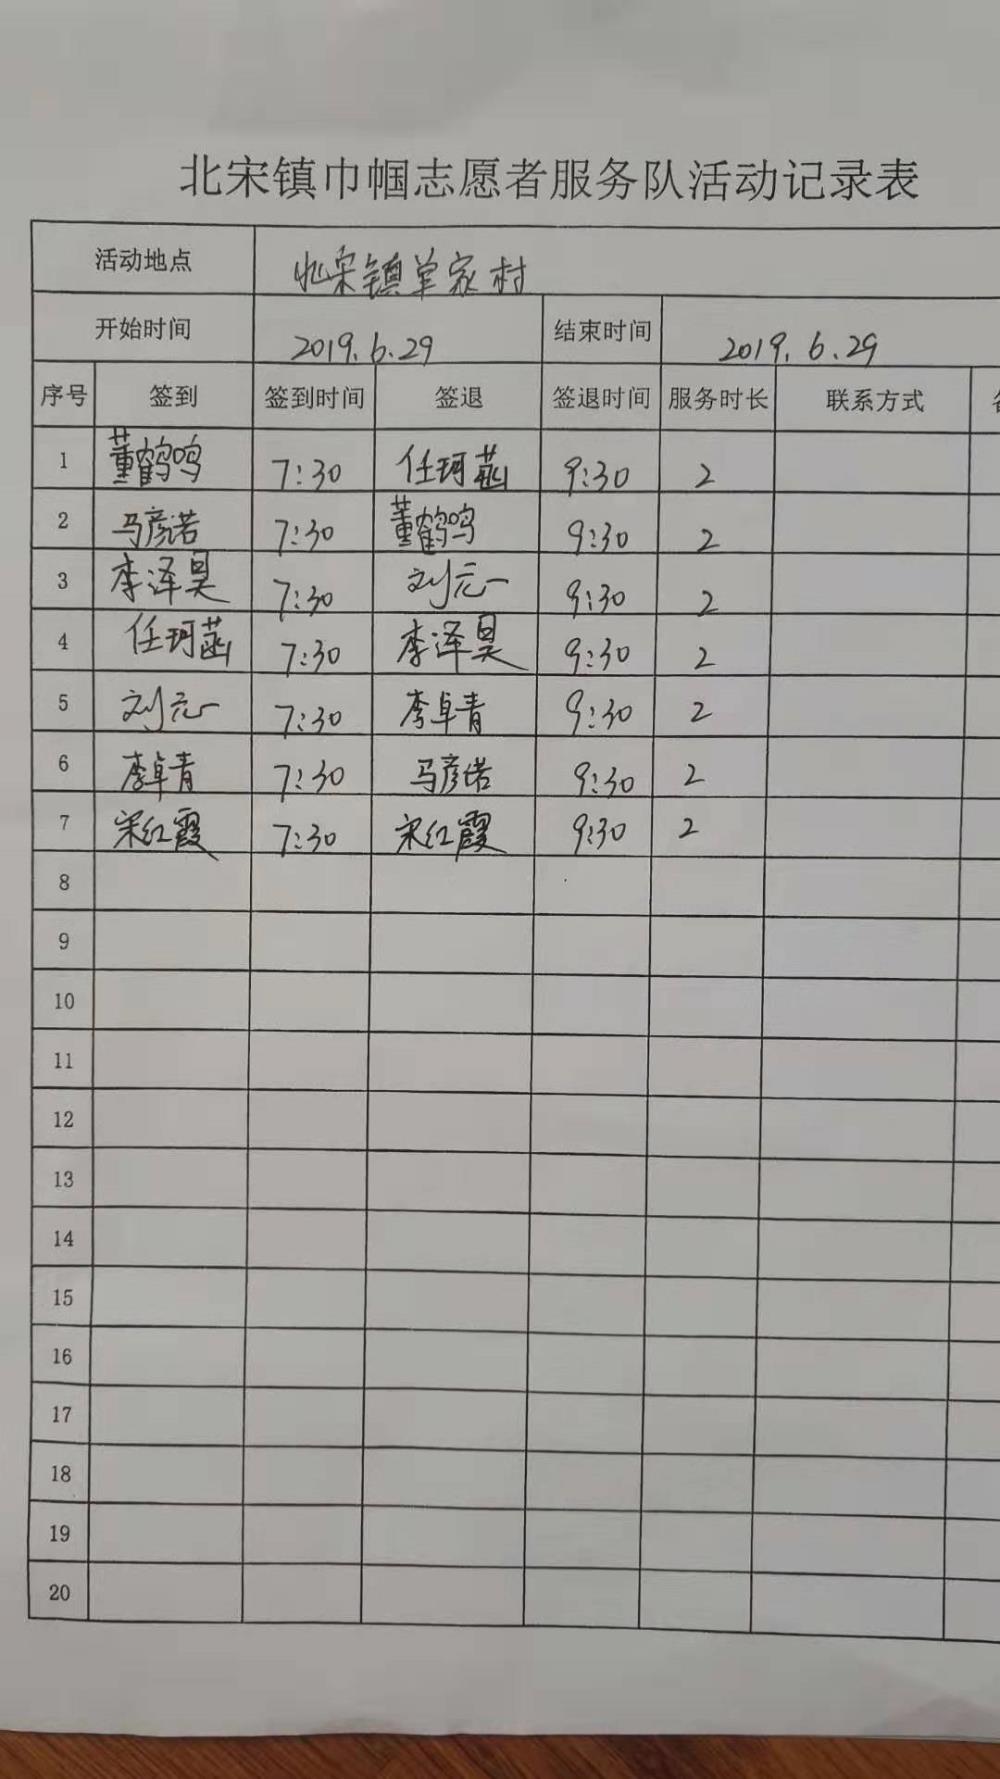 北宋镇巾帼志愿者服务队活动记录表
活动地点 北宋镇单家村
开始时间 2019.6.29 结束时间 2019.6.29
序号 签到 签到时间 签退 签退时间 服务时长 联系方式
1 董鹤鸣 7:30 任珂菡 9:30 2
2 马彦诺 7:30 董鹤鸣 9:30 2
3 李泽昊 7:30 刘元一 9:30 2
4 任珂菡 7:30 李泽昊 9:30 2
5 刘元一 7:30 李卓青 9:30 2
6 李卓青 7:30 马彦诺 9:30 2
7 宋红霞 7:30 宋红霞 9:30 2
8
9
10
11
12
13
14
15
16
17
18
19
20